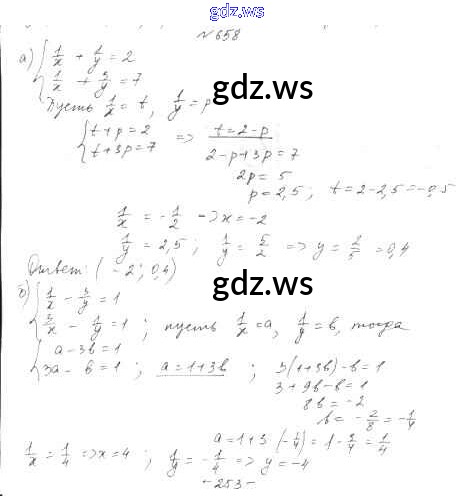 gdz.ws
№658
а) { 1/x + 1/y = 2
1/x + 3/y = 7
Пусть 1/x = t, 1/y = p
{ t + p = 2 => t = 2 - p
t + 3p = 7
2 - p + 3p = 7
2p = 5
p = 2,5; t = 2 - 2,5 = -0,5
1/x = -1/2 => x = -2
1/y = 2,5; 1/y = 5/2 => y = 2/5 = 0,4
Ответ: (-2; 0,4)
б) { 1/x - 3/y = 1
3/x - 1/y = 1; пусть 1/x = a, 1/y = b, тогда
{ a - 3b = 1
3a - b = 1; a = 1 + 3b; 3(1+3b) - b = 1
3 + 9b - b = 1
8b = -2
b = -2/8 = -1/4
a = 1 + 3 (-1/4) = 1 - 3/4 = 1/4
1/x = 1/4 => x = 4; 1/y = -1/4 => y = -4
- 253 -
gdz.ws
gdz.ws